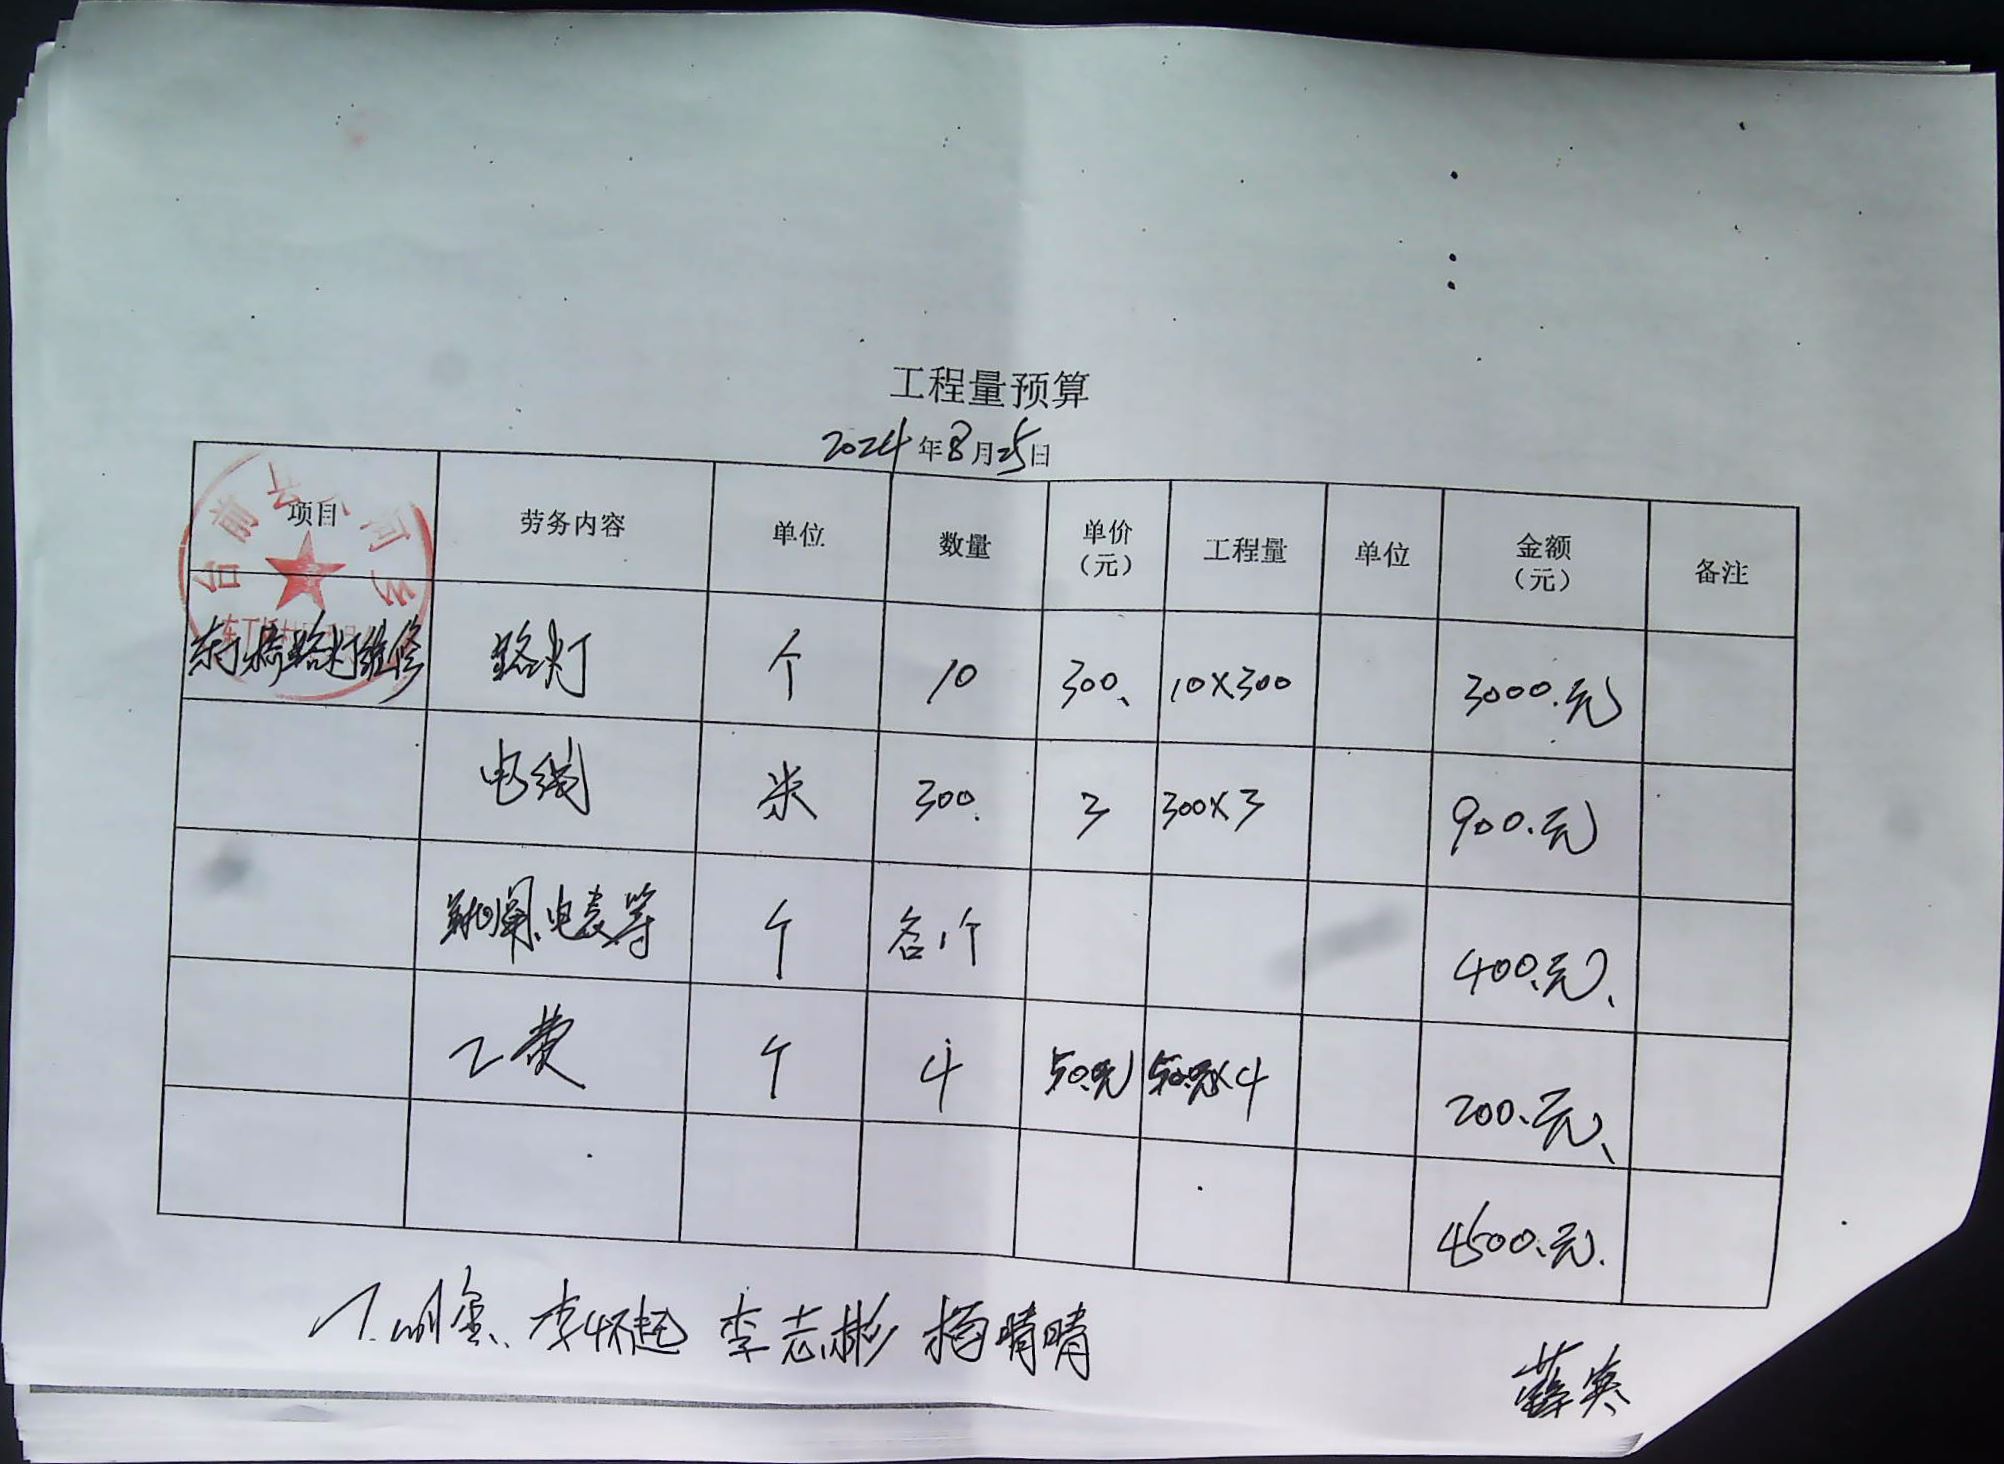 工程量预算
2024年8月25日
项目 劳务内容 单位 数量 单价（元） 工程量 单位 金额（元） 备注
东丁桥路灯维修 路灯 个 10 300、 10×300 3000.元
电线 米 300. 3 300×3 900.元
闸、电表等 个 各1个 400.元、
工费 个 4 50.元 50元×4 200.元、
4500.元.
李怀起 李志彬 杨晴晴
薛寒